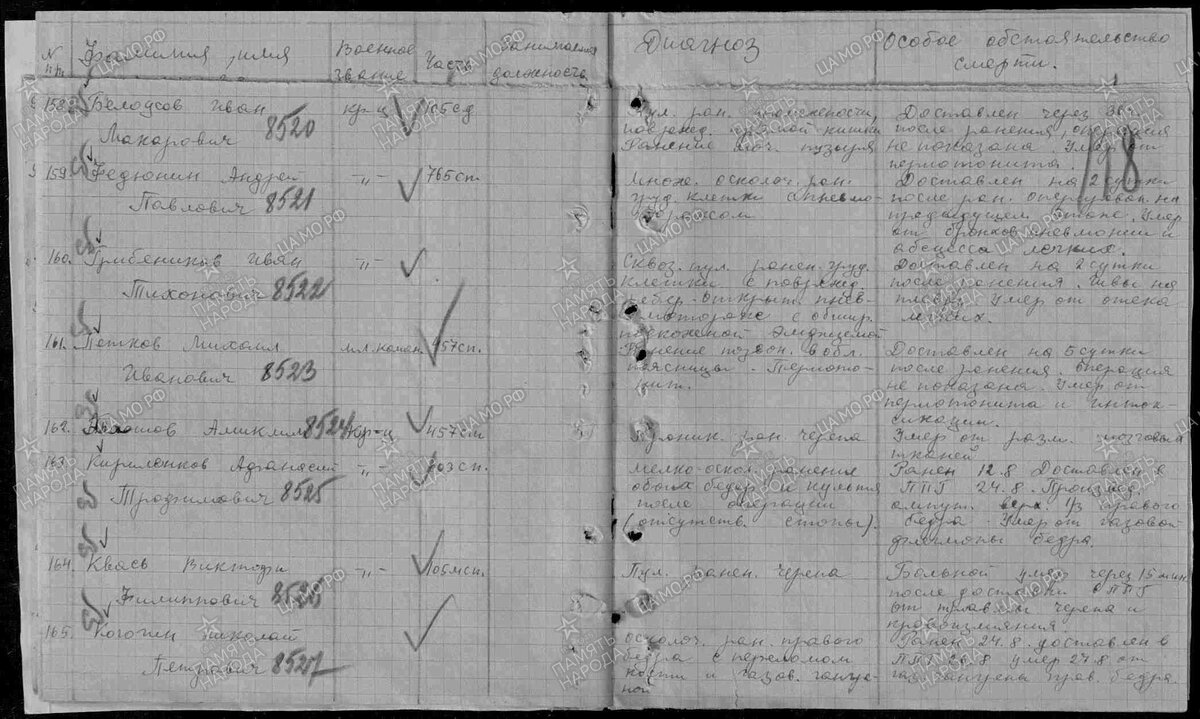 N Фамилия, имя Военное Часть Занимаемая Диагноз Особое обстоятельство
п/п звание должность смерти.
158. Белоусов Иван кр-ц 105сд Пул. ран. промежности, Доставлен через 36 ч.
Макарович 8520 поврежд. прямой кишки после ранения, операция
Ранение моч. пузыря не показана. Умер от
перитонита.
118
159. Федюнин Андрей -"- 765сп. Множ. осколоч. ран. Доставлен на 2 сутки
Павлович 8521 груд. клетки с пневмо- после ран. оперирован на
тораксом предыдущем этапе. Умер
от бронхопневмонии и
абсцесса легких.
160. Грибеников Иван -"- Сквоз. пул. ранен. груд. Доставлен на 2 сутки
Тихонович 8522 клетки с поврежд. после ранения. Швы на
ребер открыт. пнев- плевру. Умер от отека
мотораке с обшир. легких.
подкожной эмфиземой
161. Петков Михаил мл. коман. 457сп. Ранение позвон. в обл. Доставлен на 5 сутки
Иванович 8523 поясницы. Перито- после ранения. Операция
нит. не показана. Умер от
перитонита и инток-
сикации.
162. Амиклим 8524 кр-ц 457сп Проник. ран. черепа Умер от разм. мозговых
тканей
163. Кирилонков Афанасий -"- 703сп. Мелко-оскол. ранения Ранен 12.8 Доставлен в
Трофимович 8525 обоих бедер и культя ППГ 24.8. Произвед.
после операции ампут. верх. 1/3 правого
(отсутств. стопы). бедра. Умер от газовой
флегмоны бедра.
164. Квась Виктор -"- 105мсп. Пул. ранен. черепа Больной умер через 15 мин
Филиппович 8526 после доставки в ППГ
от травмы черепа и
кровоизлияния.
165. Рогогин Николай Осколоч. ран. правого Ранен 24.8. доставлен в
Петрович 8527 бедра с переломом ППГ 26.8 умер 27.8 от
кости и газов. гангре- газ. гангрены прав. бедра.
ной
ПАМЯТЬ НАРОДА
ЦАМО.РФ